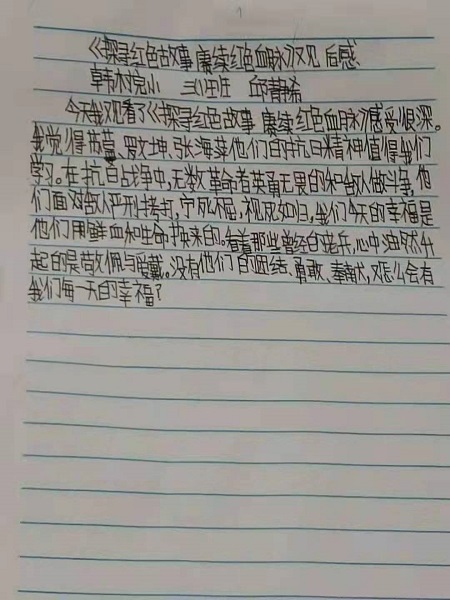 《探寻红色故事 赓续红色血脉》观后感
韩木完小 三(1)班
今天我观看了《探寻红色故事 赓续红色血脉》感受很深。
我觉得苏蔓、罗文坤、张海萍他们的抗日精神值得我们
学习。在抗日战争中,无数革命者英勇无畏的和敌人做斗争,他
们面对敌人严刑拷打,宁死不屈,视死如归,我们今天的幸福是
他们用鲜血和生命换来的。看着那些曾经的老兵,心中油然升
起的是敬佩与爱戴。没有他们的团结、勇敢、奉献,又怎么会有
我们每一天的幸福?